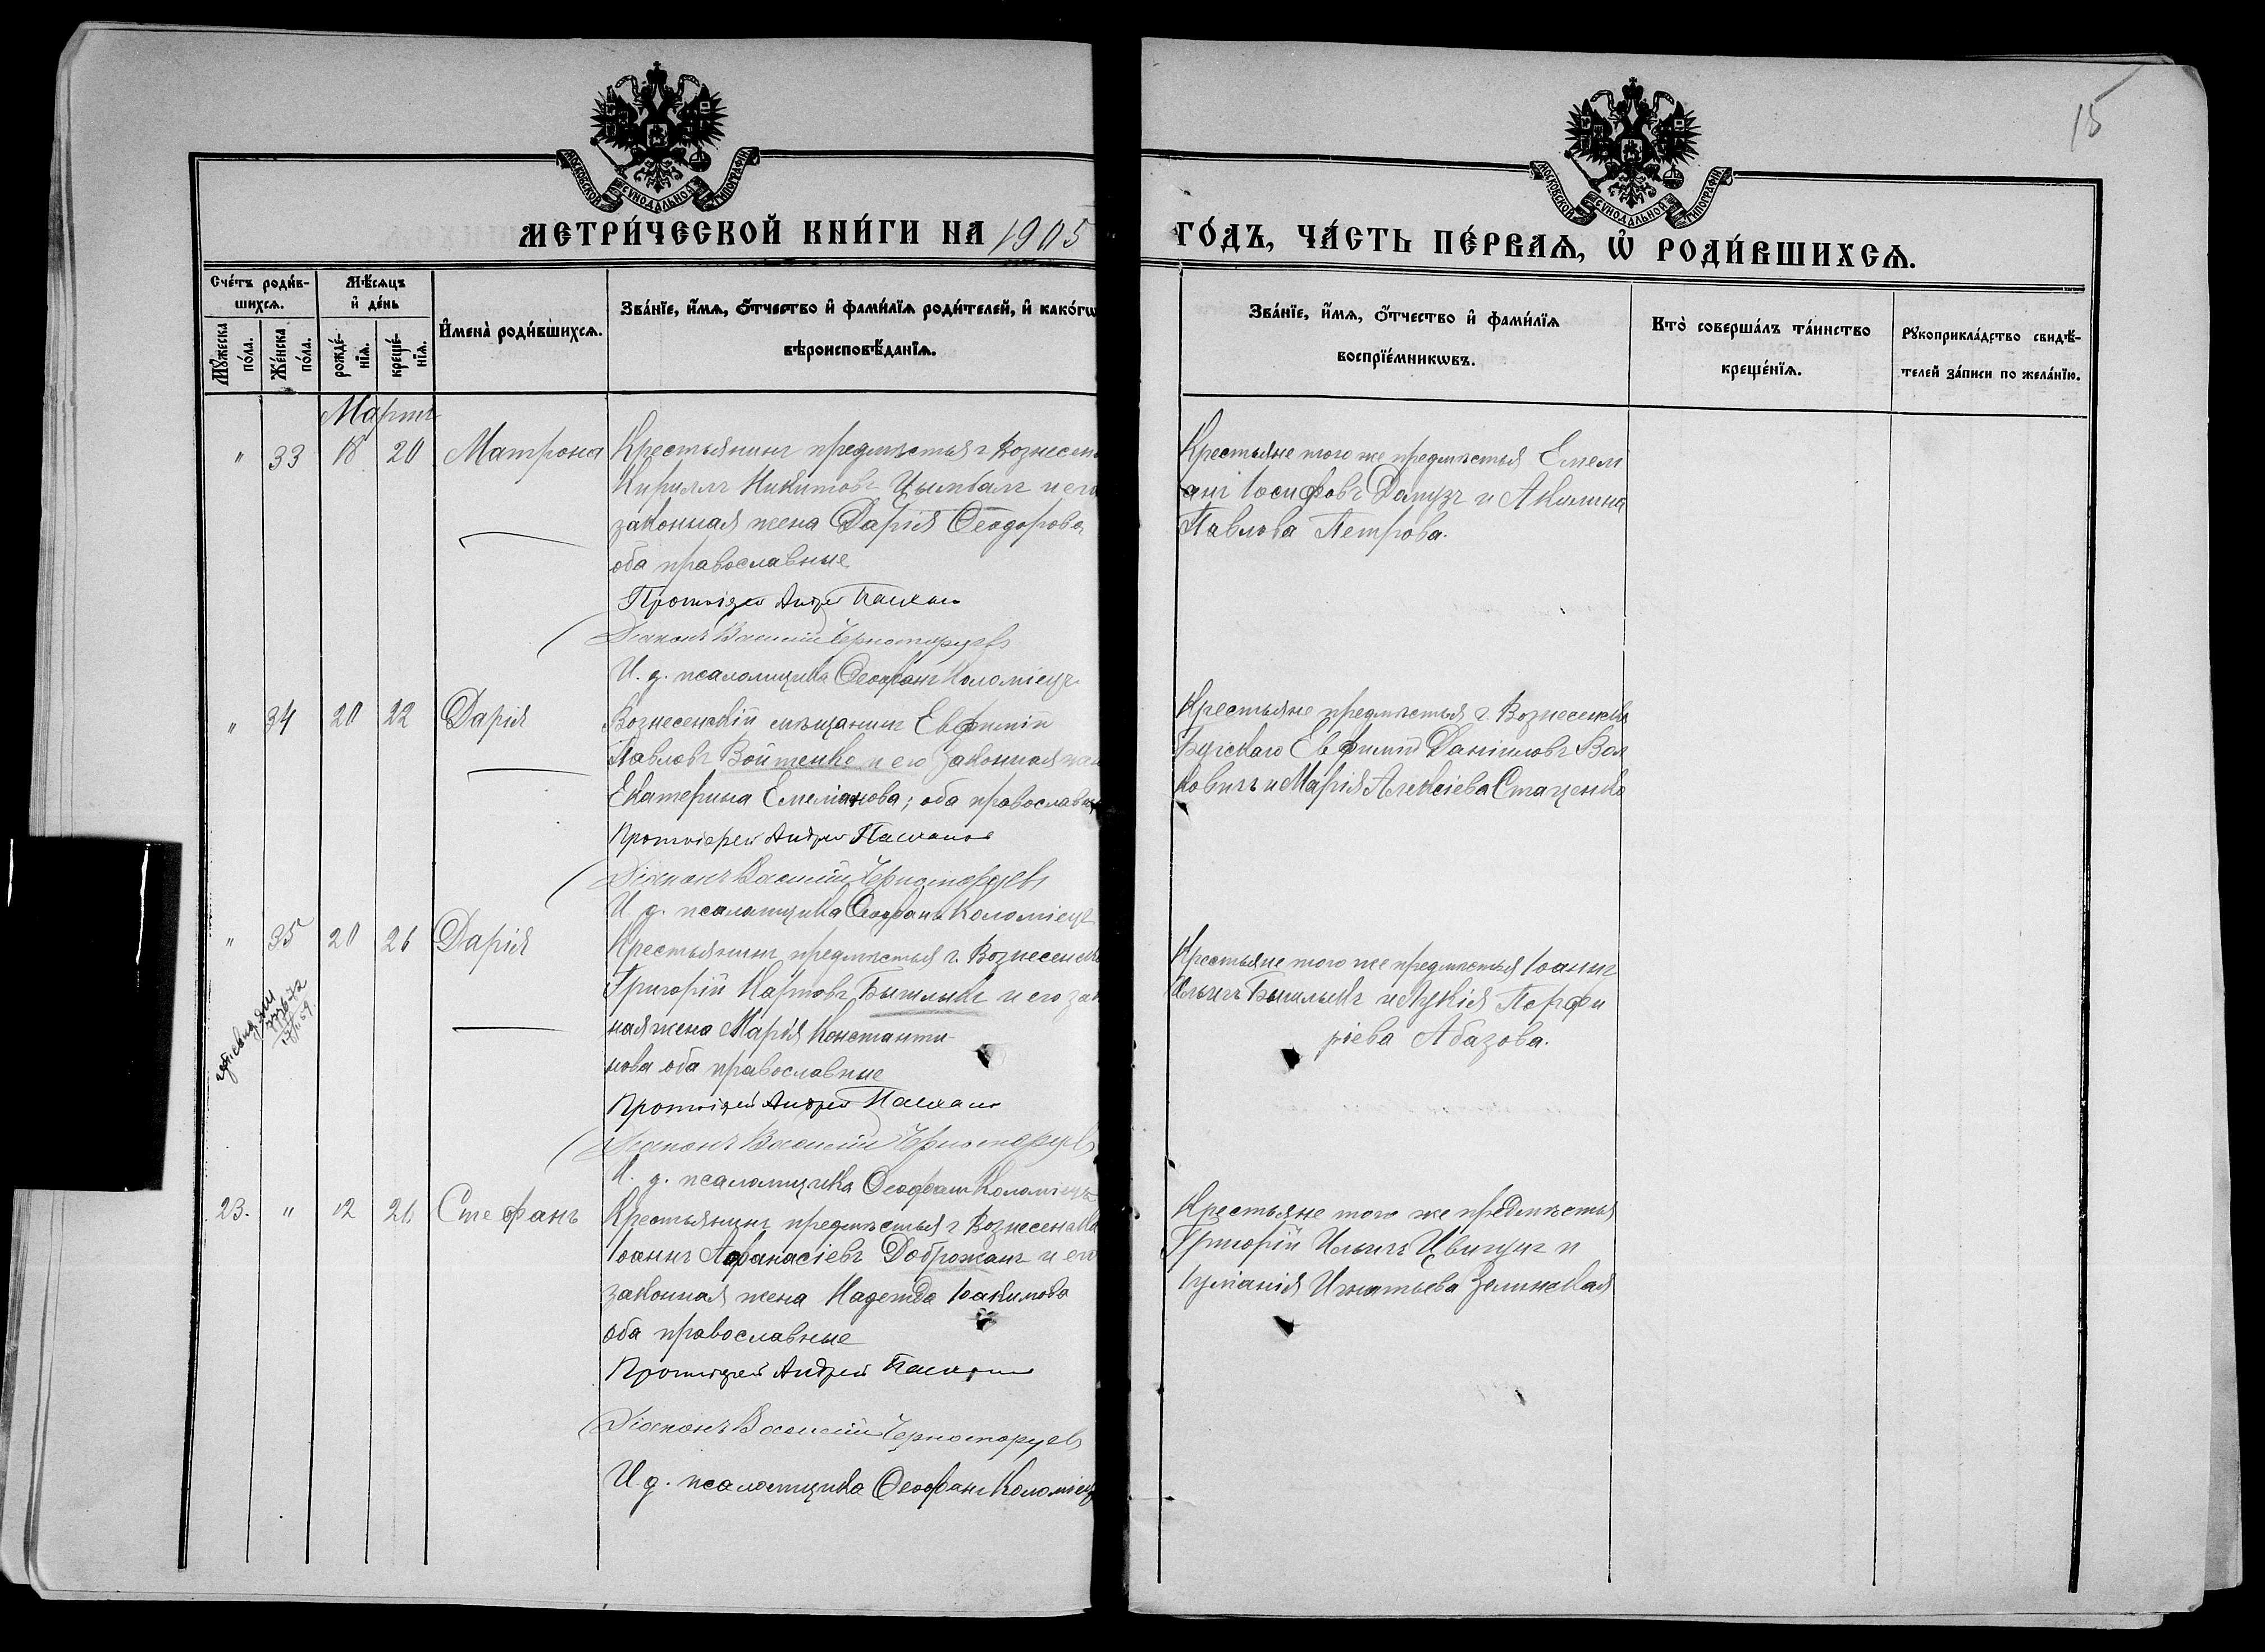 15
МОСКОВСКОЙ СѴНОДАЛЬНОЙ ТИПОГРАФІИ
МОСКОВСКОЙ СѴНОДАЛЬНОЙ ТИПОГРАФІИ
МЕТРИ́ЧЕСКОЙ КНИ́ГИ НА 1905
ГО́ДЪ, ЧА́СТЬ ПЕ́РВАѦ, Ѽ РОДИ́ВШИХСѦ.
Сче́тъ роди́в-
шихсѧ.
Мѣ́сѧцъ
и҆ де́нь
Мꙋ́жеска
по́ла.
Же́нска
по́ла.
рожде́-
нїѧ.
креще́-
нїѧ.
И҆мена̀ роди́вшихсѧ.
Зва́нїе, и҆́мѧ, ѻ҆́тчество и҆ фами́лїѧ роди́телей, и҆ како́гѡ
вѣроисповѣ́данїѧ.
Зва́нїе, и҆́мѧ, ѻ҆́тчество и҆ фами́лїѧ
воспрїе́мникѡвъ.
Кто̀ соверша́лъ та́инство
креще́нїѧ.
Рꙋкоприкла́дство свидѣ́-
телей за́писи по жела́нїю.
Мартъ
" 33 18 20 Матрона Крестьянинъ предмѣстья г. Вознесен
Кириллъ Никитовъ Цымбалъ и его
законная жена Дарія Ѳеодорова
оба православные
Протоіерей Андрей
Діаконъ Василій Черноморцевъ
И. д. псаломщика Ѳеофанъ Коломіецъ
Крестьяне того же предмѣстья Емел
анъ Іосифовъ и Акилина
Павлова Петрова.
" 34 20 22 Дарія Вознесенскій мѣщанинъ Евфимій
Павловъ Войтенко и его законная жен
Екатерина Емеліанова; оба православн
Протоіерей Андрей
Діаконъ Василій Черноморцевъ
И. д. псаломщика Ѳеофанъ Коломіецъ
Крестьяне предмѣстья г. Вознесенска
Евфимій Даніиловъ Вол
ковичъ и Марія Алексіева Стаценко
" 35 20 26 Дарія Крестьянинъ предмѣстья г. Вознесенска
Григорій Карповъ и его зак
ная жена Марія Константи-
нова оба православные
Протоіерей Андрей
Діаконъ Василій Черноморцевъ
И. д. псаломщика Ѳеофанъ Коломіецъ
Крестьяне того же предмѣстья Іоаннъ
Ильинъ и Лукія Порфи
ріева Абазова.
23. " 22 26 Стефанъ Крестьянинъ предмѣстья г. Вознесенска
Іоаннъ Афанасіевъ Доброжанъ и его
законная жена Надежда Іоакимова
оба православные
Протоіерей Андрей
Діаконъ Василій Черноморцевъ
И. д. псаломщика Ѳеофанъ Коломіец
Крестьяне того же предмѣстья
Григорій Ильинъ и
Іуліанія Игнатьева Зелинская